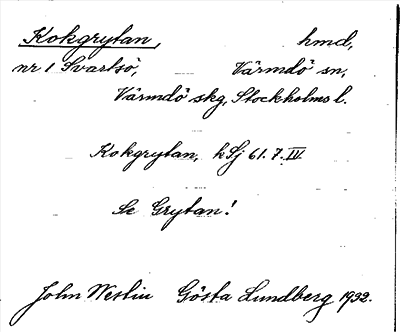 Kokgrytan, hmd,
nr 1 Svartsö, Värmdö sn,
Värmdö skg, Stockholms l.
Kokgrytan, hSj 61.7.IV.
Se Grytan!
John Westin Gösta Lundberg 1932.